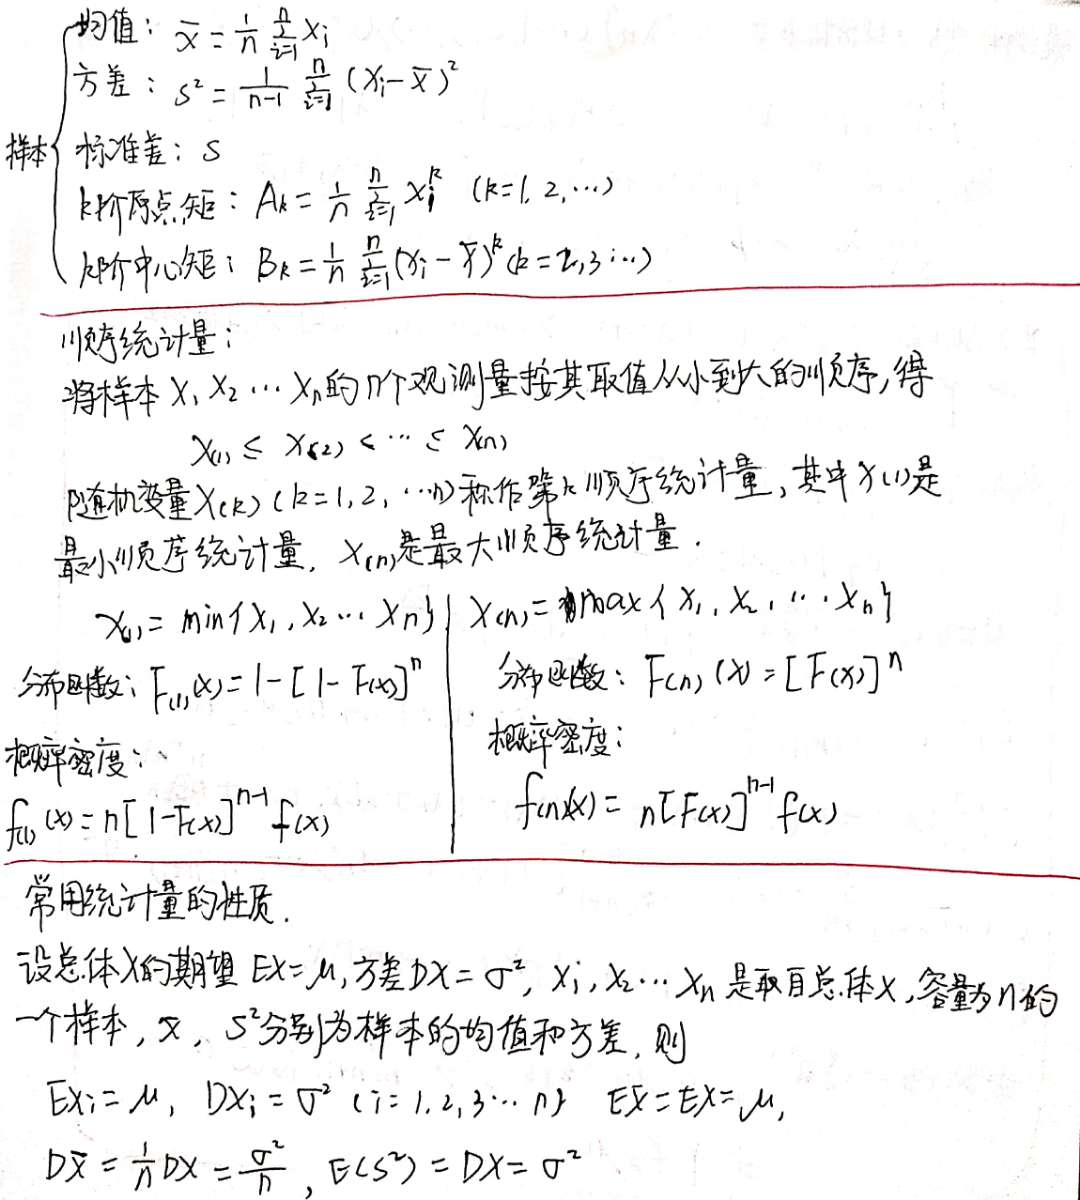 样本
均值：x̄ = 1/n Σ_{i=1}^{n} Xi
方差：S² = 1/(n-1) Σ_{i=1}^{n} (Xi - X̄)²
标准差：S
k阶原点矩：Ak = 1/n Σ_{i=1}^{n} Xi^k (k=1,2,…)
k阶中心矩：Bk = 1/n Σ_{i=1}^{n} (Xi - X̄)^k (k=2,3…)
顺序统计量：
将样本X1 X2 … Xn的n个观测量按其取值从小到大的顺序，得
X(1) ≤ X(2) < … ≤ X(n)
随机变量X(k) (k=1,2,…n)称作第k顺序统计量，其中X(1)是
最小顺序统计量，X(n)是最大顺序统计量.
X(1) = min{X1,X2…Xn}
分布函数：F(1)(x) = 1-[1-F(x)]^n
概率密度：
f(1)(x) = n[1-F(x)]^{n-1} f(x)
X(n) = max{X1,X2,…,Xn}
分布函数：F(n)(x) = [F(x)]^n
概率密度：
f(n)(x) = n[F(x)]^{n-1} f(x)
常用统计量的性质.
设总体X的期望EX=μ,方差DX=σ², Xi,X2…Xn是取自总体X,容量为n的
一个样本，x̄，S²分别为样本的均值和方差，则
EXi=μ, DXi=σ² (i=1,2,3…n) EX̄=EX=μ,
DX̄ = 1/n DX = σ²/n , E(S²) = DX = σ²